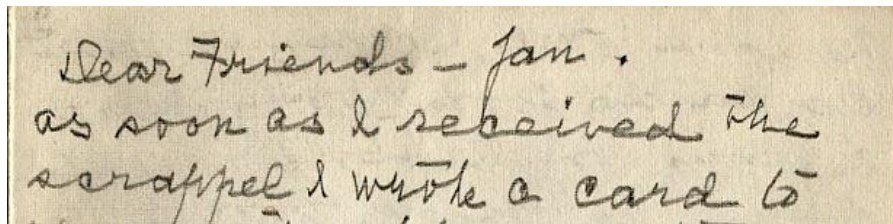 Dear Friends - Jan.
as soon as I received the
scrappel I wrote a card to